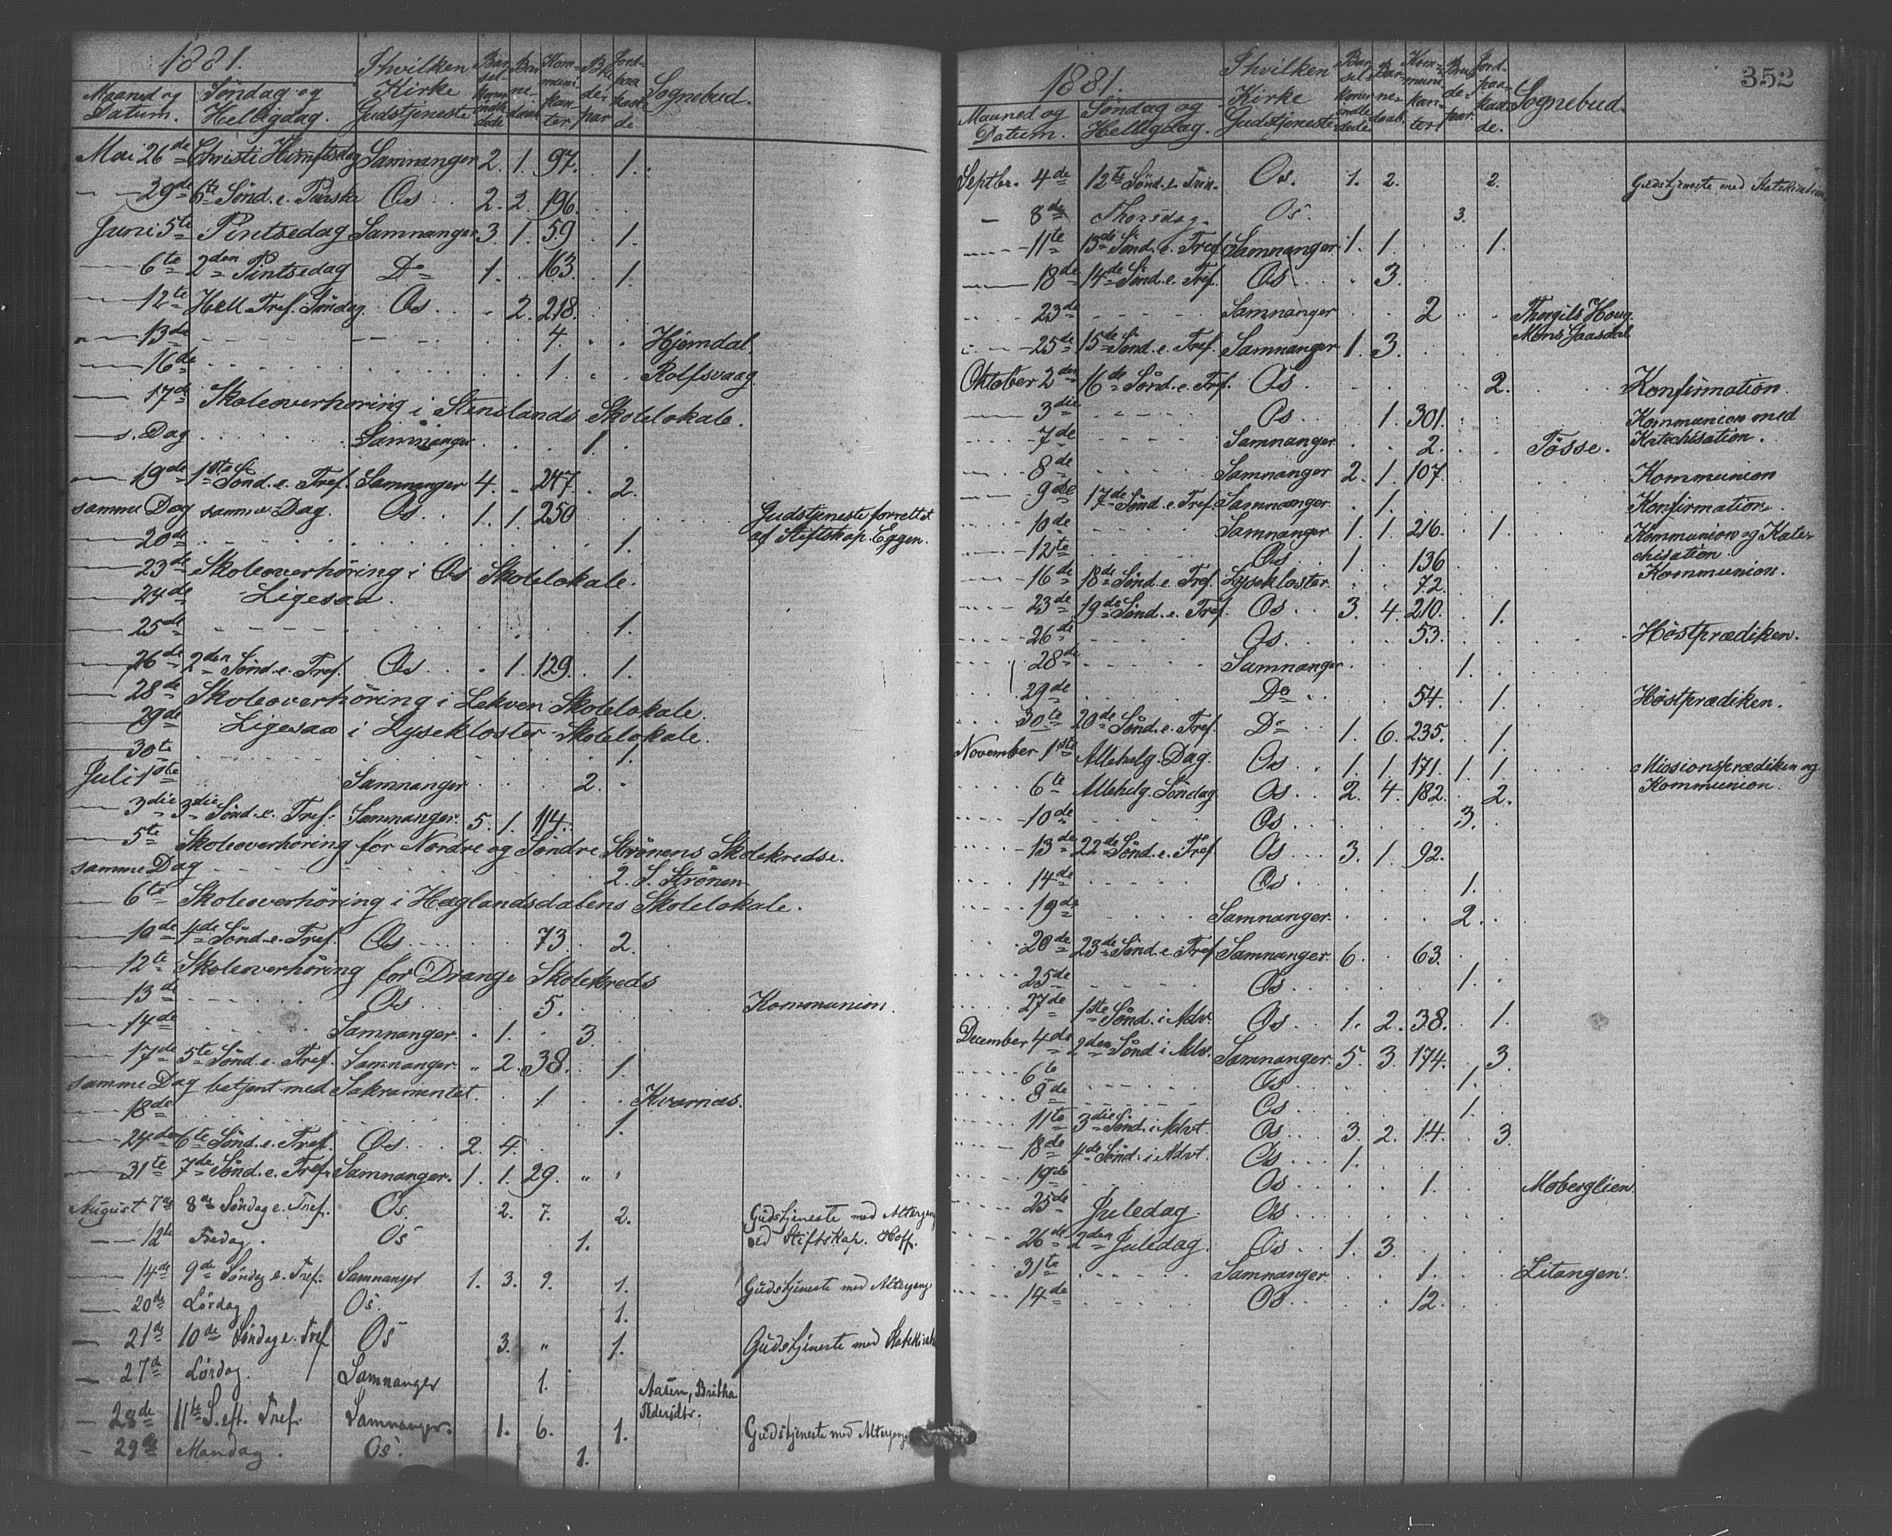 1881.
Maaned og Datum. Søndag og Helligdag. I hvilken Kirke Gudstjeneste Barselkoner indledede Barnedaab Kommunikanter. Brudepar Jordpaakastede Sognebud.
Mai 26de Christi Himlfsdag Samnanger 2. 1. 97. 1.
— 29de 6te Sønd. e. Paaske Os 2. 2. 196.
Juni 5te Pintsedag Samnanger 3. 1. 59. 1.
— 6te 2den Pintsedag Do 1. 163. 1.
— 12te Hell. Tref. Søndag Os 2. 218.
— 13de 4. Hjemdal
— 16de 1. Rolfsvaag
— 17de Skoleoverhøring i Stenslands Skolelokale.
s. Dag Samnanger 1.
— 19de 1ste Sønd. e. Tref. Samnanger 4. 247. 2.
samme Dag samme Dag. Os 1. 1. 250 Gudstjeneste forrettet
— 20de 1. af Stiftskap. Eggen.
— 23de Skoleoverhøring i Os Skolelokale.
— 24de Ligesaa
— 25de 1.
— 26de 2den Sønd. e. Tref. Os 1. 129. 1.
— 28de Skoleoverhøring i Lekven Skolelokale.
— 29de Ligesaa i Lysekloster Skolelokale.
— 30te 1.
Juli 1ste Samnanger 2.
— 3die 3die Sønd. e. Tref. Samnanger 5. 1. 114.
— 5te Skoleoverhøring for Nordre og Søndre Strønens Skolekredse.
samme Dag 2. S. Strønen
— 6te Skoleoverhøring i Hæglandsdalens Skolelokale.
— 10de 4de Sønd. e. Tref. Os 73. 2.
— 12te Skoleoverhøring for Drange Skolekreds
— 13de Os 5. Kommunion
— 14de Samnanger 1. 3.
— 17de 5te Sønd. e. Tref. Samnanger 2. 38. 1.
samme Dag betjent med Sakramentet 1 Kvernæs.
— 18de 1.
— 24de 6te Sønd. e. Tref. Os 2. 4.
— 31te 7de Sønd. e. Tref. Samnanger 1. 1. 29. " "
August 7de 8de Søndag e. Tref. Os. 2. 7. 2. Gudstjeneste med Altergang
— 12te Fredag. Os 1. ved Stiftskap. Hoff.
— 14de 9de Søndag e. Tref. Samnanger 1. 3. 9. 1. Gudstjeneste med Altergang
— 20de Lørdag Os. 1.
— 21de 10de Søndag e. Tref. Os 3. " 1. Gudstjeneste med
— 27de Lørdag. Samnanger 1. Aasen, Britha
Pedersdtr.
— 28de 11te S. eft. Tref. Samnanger. 1. 6. 1. Gudstjeneste med Altergang
— 29de Mandag. Os. 1.
352
1881.
Maaned og Datum. Søndag og Helligdag. I hvilken Kirke Gudstjeneste Barselkoner indledede Barnedaab. Kommunikanter Brudepar. Jordpaakastede. Sognebud.
Septbr. 4de 12te Sønd. e. Trin. Os. 1. 2. 2. Gudstjeneste med Katekisation
— 8de Thorsdag. Os. 3.
— 11te 13de Sønd. e. Tref. Samnanger 1. 1. 1.
— 18de 14de Sønd. e. Tref. Os 3.
23de Samnanger 2 Thorgils Houg.
— 25de 15de Sønd. e. Tref. Samnanger 1. 3. Mons Gaasdal
Oktober 2den 16de Sønd. e. Tref. Os. 2. Konfirmation.
— 3die Os 1. 301. Kommunion med
— 7de Samnanger 2. Tøsse. Katechisation.
— 8de Samnanger 2. 1. 107. Kommunion
— 9de 17de Sønd. e. Tref. Samnanger. 1. Konfirmation.
— 10de Samnanger 1. 1. 216. 1. Kommunion og Kate-
— 12te Os 1. 136 chisation.
— 16de 18de Sønd. e. Tref. Lysekloster. 72. Kommunion.
— 23de 19de Sønd. e. Tref. Os 3. 4. 210. 1.
— 26de Os. 53. Høstprædiken.
— 28de Samnanger 1.
— 29de Do 54. 1. Høstprædiken.
30te 20de Sønd. e. Tref. Do 1. 6. 235. 1.
November 1ste Allehelg. Dag. Os 1. 1. 171. 1. 1. Missionsprædiken og
6te Allehelg. Søndag. Os 2. 4. 182. 2. Kommunion.
10de Os 3.
13de 22de Sønd. e. Tref. Os 3. 1. 92.
14de Os 1.
19de Samnanger 2.
20de 23de Sønd. e. Tref. Samnanger 6. 63.
25de Os 1.
27de 1ste Sønd. i Adv. Os 1. 2. 38. 1.
December 4de 2den Sønd. i Adv. Samnanger 5. 3. 174. 3.
6te Os 1.
8de Os 1.
11te 3die Sønd. i Advt. Os 3. 2. 14. 3.
18de 4de Sønd. i Advt. Os 1.
19de Os 1. Moberglien.
25de Juledag. Os
26de 2den Juledag. Os 1. 3.
31te Samnanger 1. Litangen.
14de Os 12.